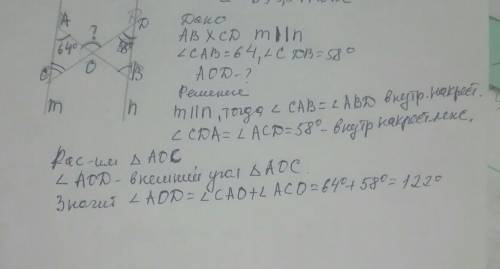 A
?
D
64°
58°
C
O
B
m
n
Дано
АВ X CD m || n
∠CAB=64, ∠CDB=58°
AOD-?
Решение
m||n, тогда ∠CAB=∠ABD внутр. накрест.
∠CDA=∠ACD=58°- внутр накрест лежс.
Рас-им △AOC
∠AOD- внешний угол △AOC.
Значит ∠AOD=∠CAO+∠ACO=64°+58°=122°